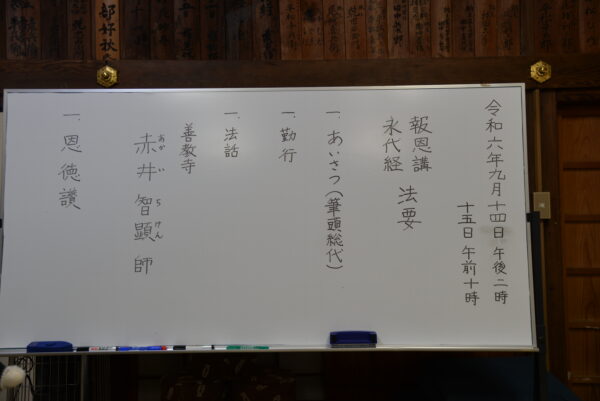 令和六年九月十四日 午後二時
十五日 午前十時
報恩講
永代経
法要
一、あいさつ(筆頭総代)
一、勤行
一、法話
善教寺
赤井智顕師
あかい ち けん
一、恩徳讃